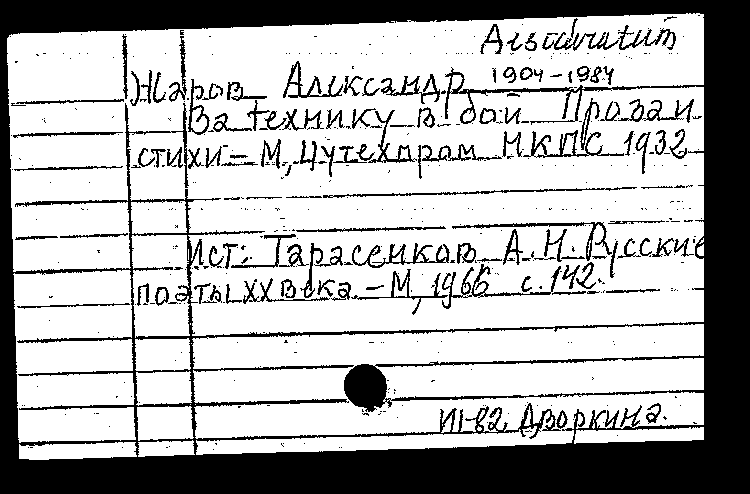 Desideratum
Жаров Александр 1904-1984
За технику в бой Проза и
стихи - М, Цутехпром НКПС 1932
Ист: Тарасенков А.Н. Русские
поэты XX века. - М, 1966 с. 142.
III-82 Дворкина.